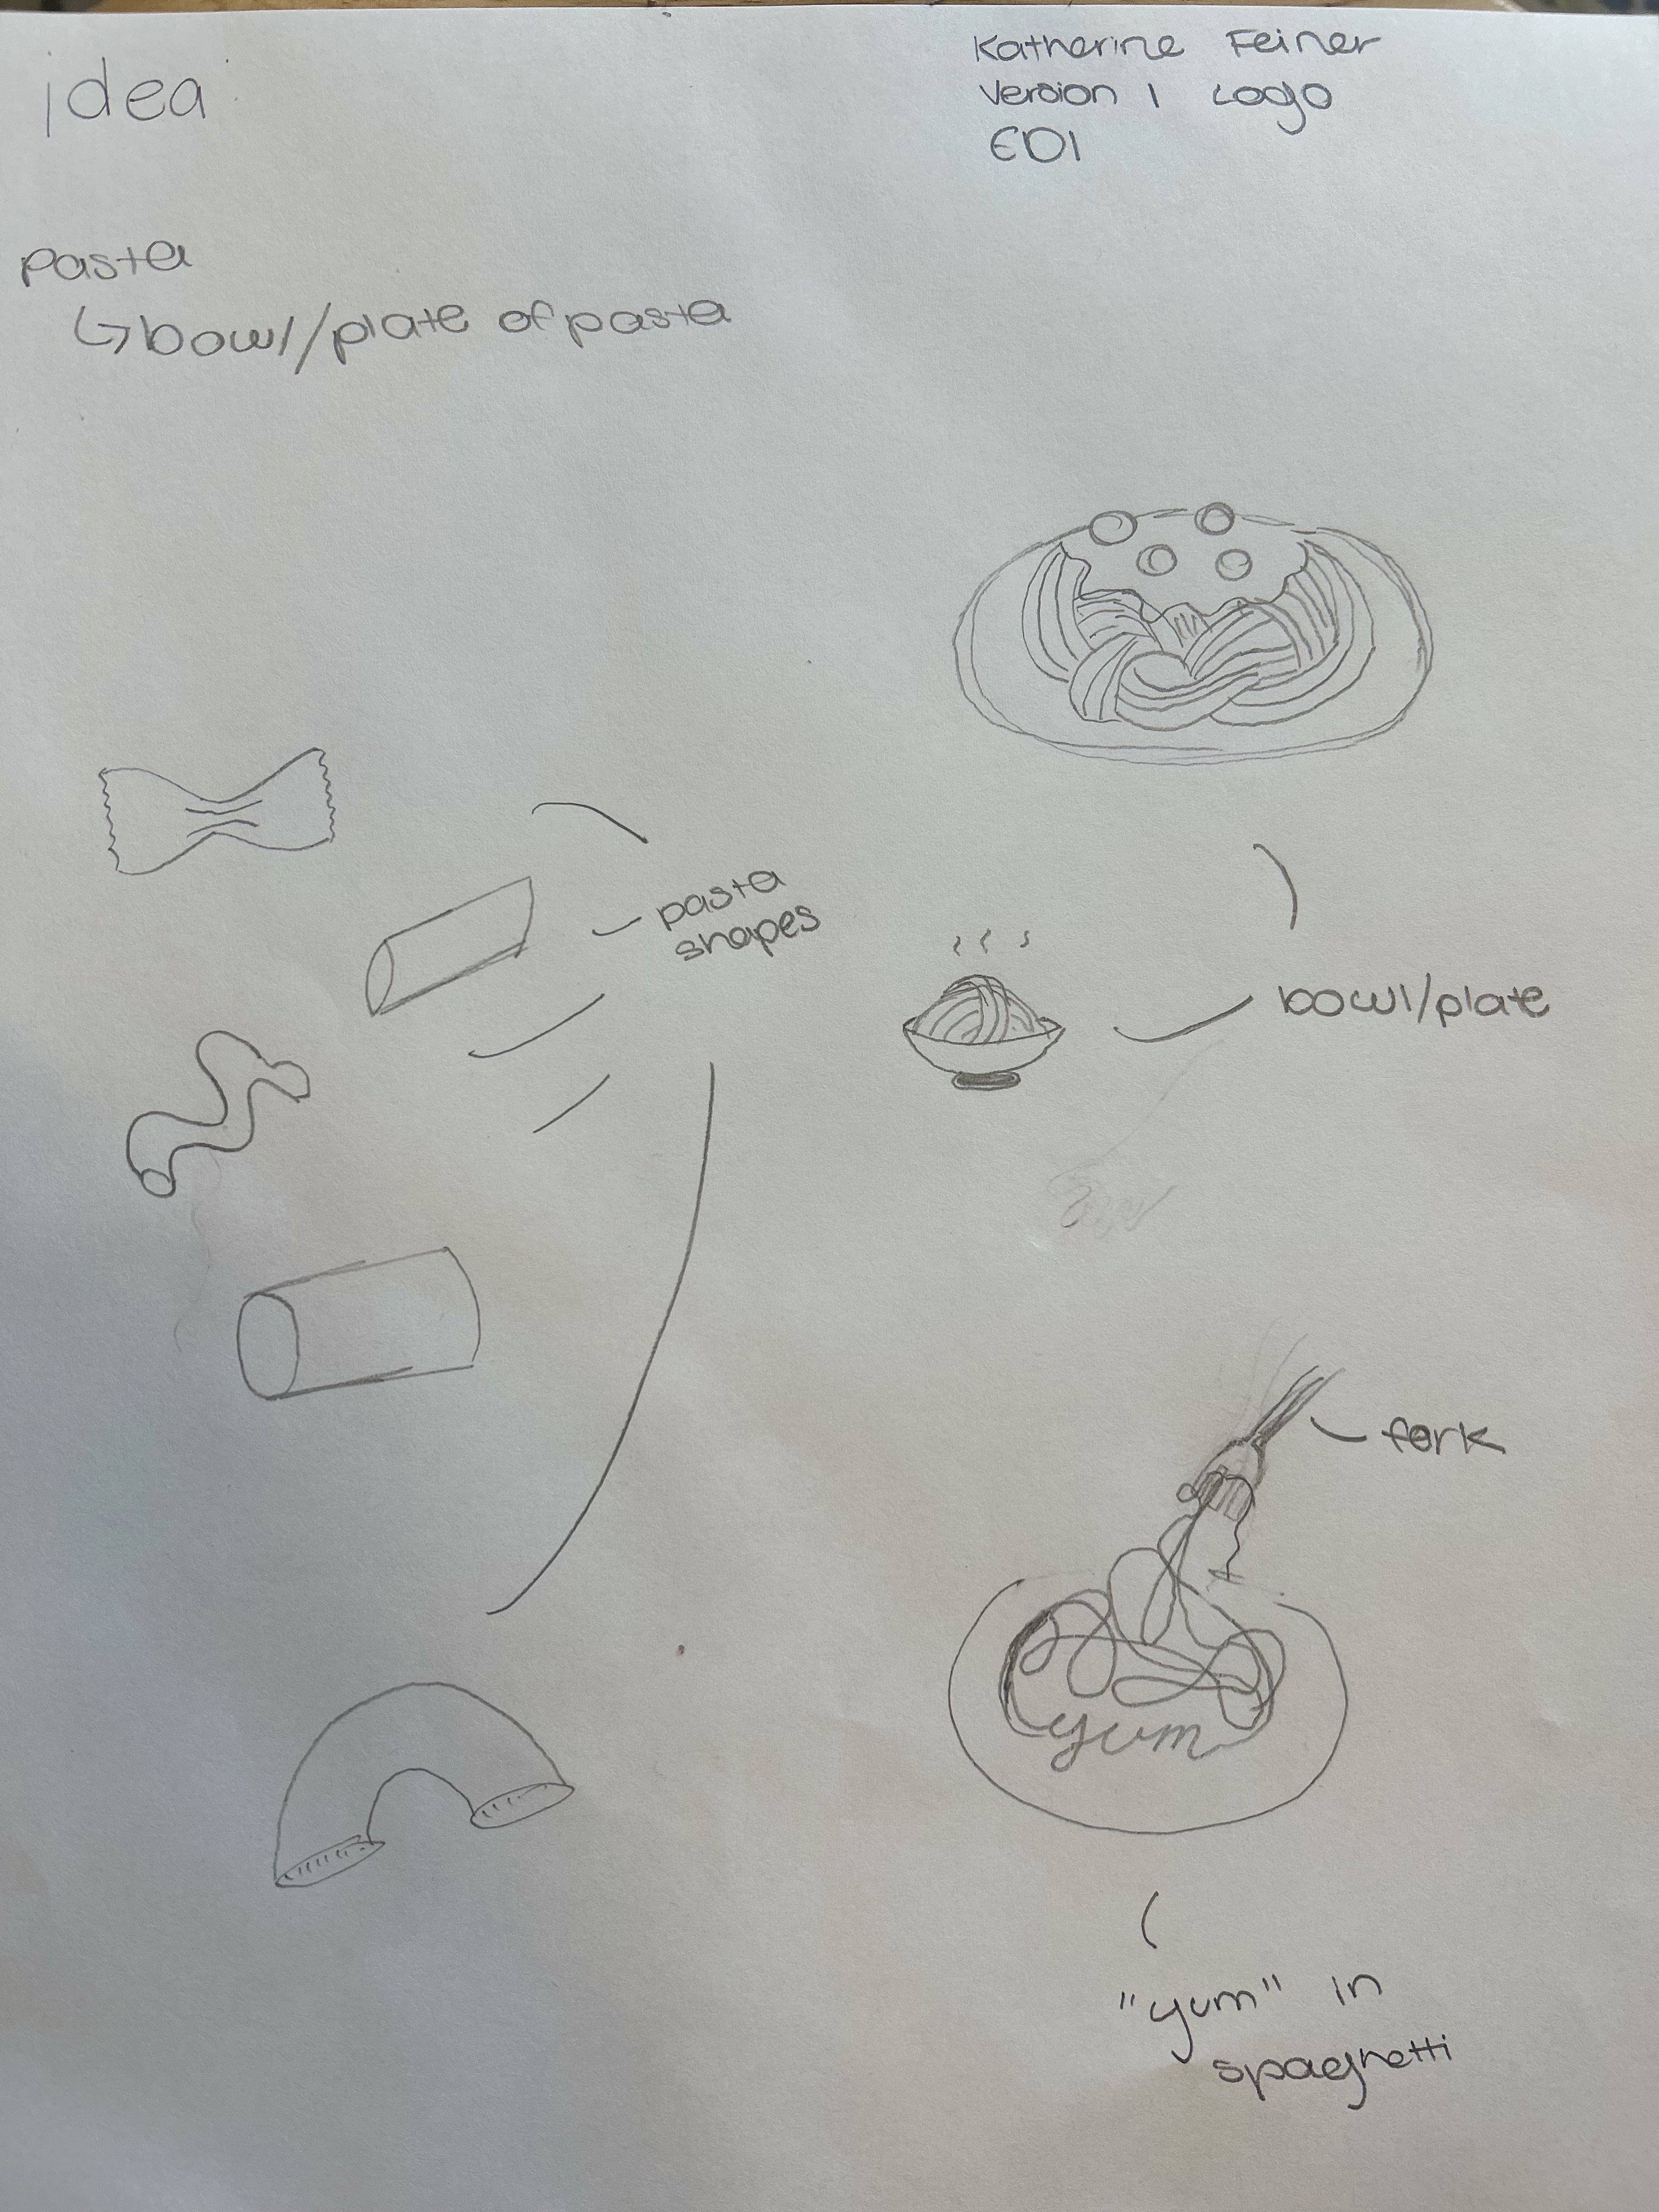 idea
Katherine Feiner
Version 1 Logo
ED1
Pasta
↳bowl/plate of pasta
pasta
shapes
bowl/plate
fork
yum
"yum" in
spaghetti